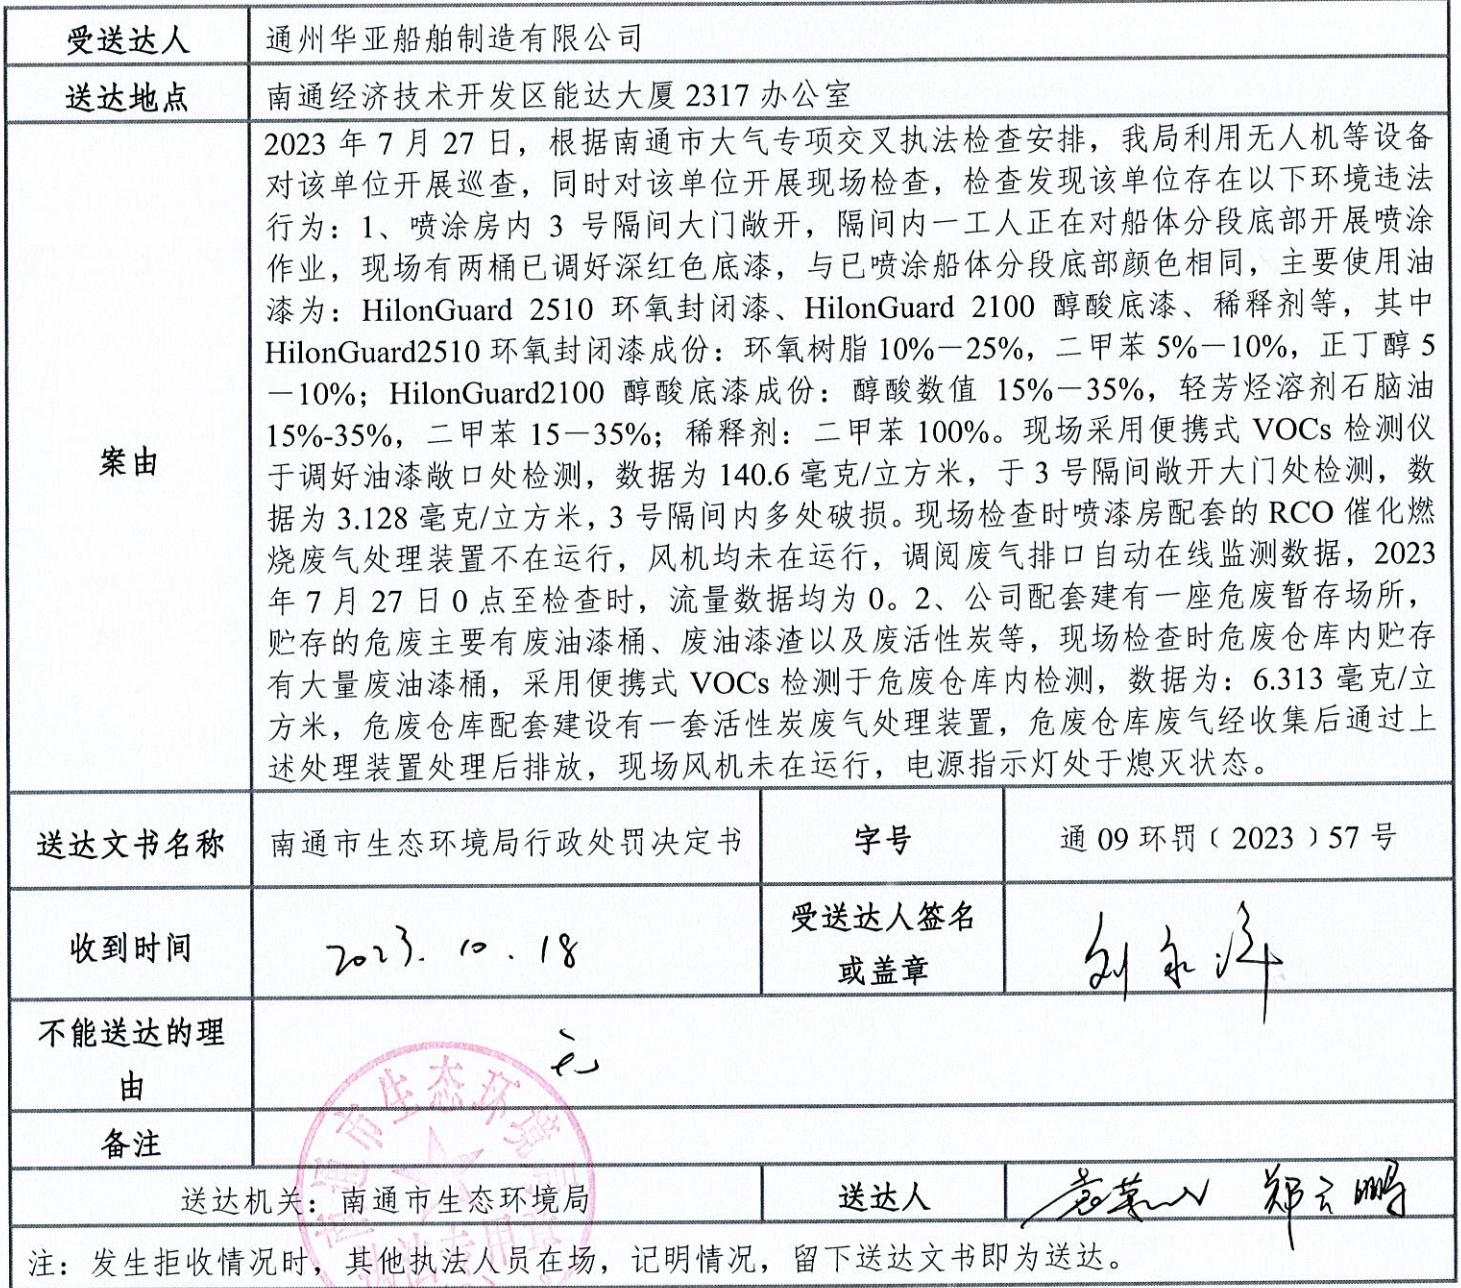 受送达人 通州华亚船舶制造有限公司
送达地点 南通经济技术开发区能达大厦 2317 办公室
案由
2023 年 7 月 27 日，根据南通市大气专项交叉执法检查安排，我局利用无人机等设备
对该单位开展巡查，同时对该单位开展现场检查，检查发现该单位存在以下环境违法
行为：1、喷涂房内 3 号隔间大门敞开，隔间内一工人正在对船体分段底部开展喷涂
作业，现场有两桶已调好深红色底漆，与已喷涂船体分段底部颜色相同，主要使用油
漆为：HilonGuard 2510 环氧封闭漆、HilonGuard 2100 醇酸底漆、稀释剂等，其中
HilonGuard2510 环氧封闭漆成份：环氧树脂 10%－25%，二甲苯 5%－10%，正丁醇 5
－10%；HilonGuard2100 醇酸底漆成份：醇酸数值 15%－35%，轻芳烃溶剂石脑油
15%-35%，二甲苯 15－35%；稀释剂：二甲苯 100%。现场采用便携式 VOCs 检测仪
于调好油漆敞口处检测，数据为 140.6 毫克/立方米，于 3 号隔间敞开大门处检测，数
据为 3.128 毫克/立方米，3 号隔间内多处破损。现场检查时喷漆房配套的 RCO 催化燃
烧废气处理装置不在运行，风机均未在运行，调阅废气排口自动在线监测数据，2023
年 7 月 27 日 0 点至检查时，流量数据均为 0。2、公司配套建有一座危废暂存场所，
贮存的危废主要有废油漆桶、废油漆渣以及废活性炭等，现场检查时危废仓库内贮存
有大量废油漆桶，采用便携式 VOCs 检测于危废仓库内检测，数据为：6.313 毫克/立
方米，危废仓库配套建设有一套活性炭废气处理装置，危废仓库废气经收集后通过上
述处理装置处理后排放，现场风机未在运行，电源指示灯处于熄灭状态。
送达文书名称 南通市生态环境局行政处罚决定书 字号 通 09 环罚﹝2023﹞57 号
收到时间 2023. 10. 18 受送达人签名
或盖章
不能送达的理
由
无
备注
送达机关：南通市生态环境局 送达人 郑云鹏
注：发生拒收情况时，其他执法人员在场，记明情况，留下送达文书即为送达。
南通市生态环境局